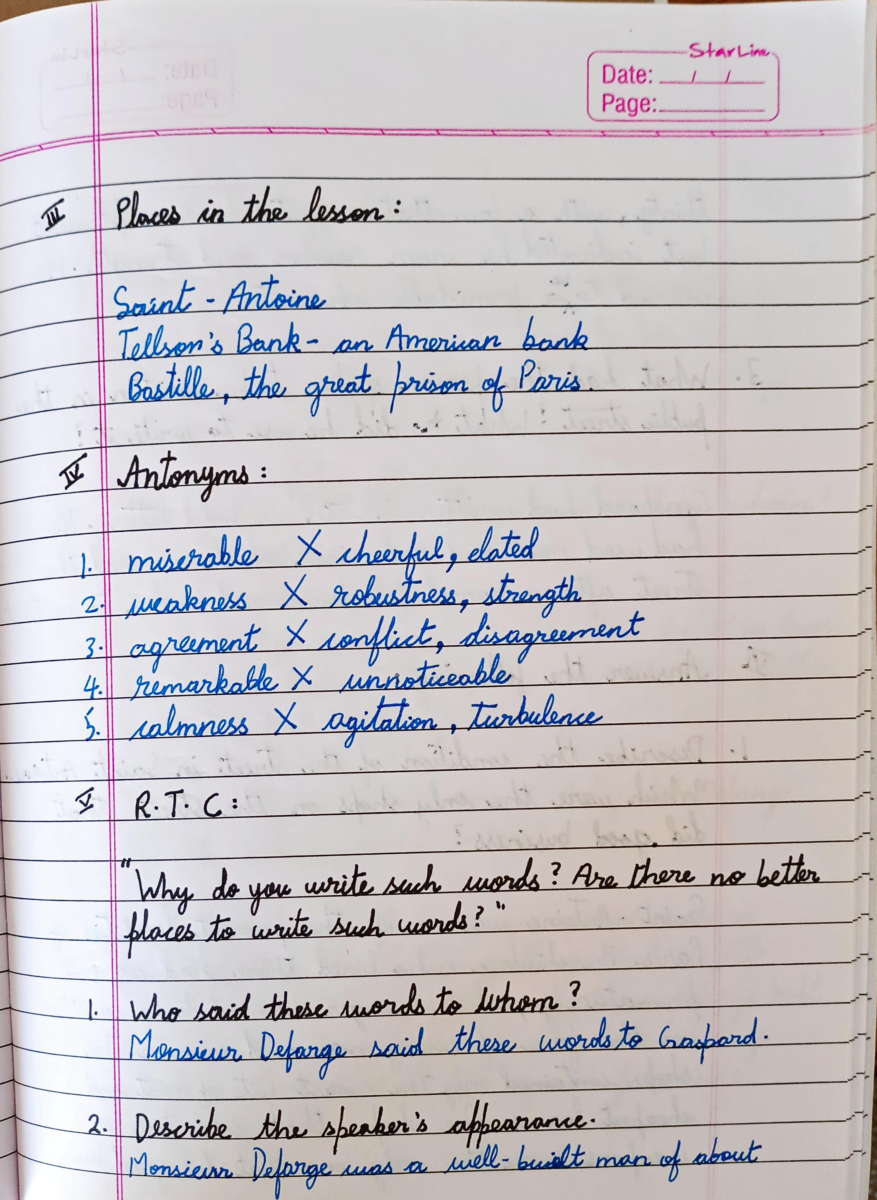 StarLine
Date: / /
Page:
III Places in the lesson :
Saint - Antoine
Tellson's Bank - an American bank
Bastille, the great prison of Paris.
IV Antonyms :
1. miserable X cheerful, elated
2. weakness X robustness, strength
3. agreement X conflict, disagreement
4. remarkable X unnoticeable
5. calmness X agitation, turbulence
V R.T.C :
"Why do you write such words? Are there no better
places to write such words?"
1. Who said these words to whom ?
Monsieur Defarge said these words to Gaspard.
2. Describe the speaker's appearance.
Monsieur Defarge was a well-built man of about